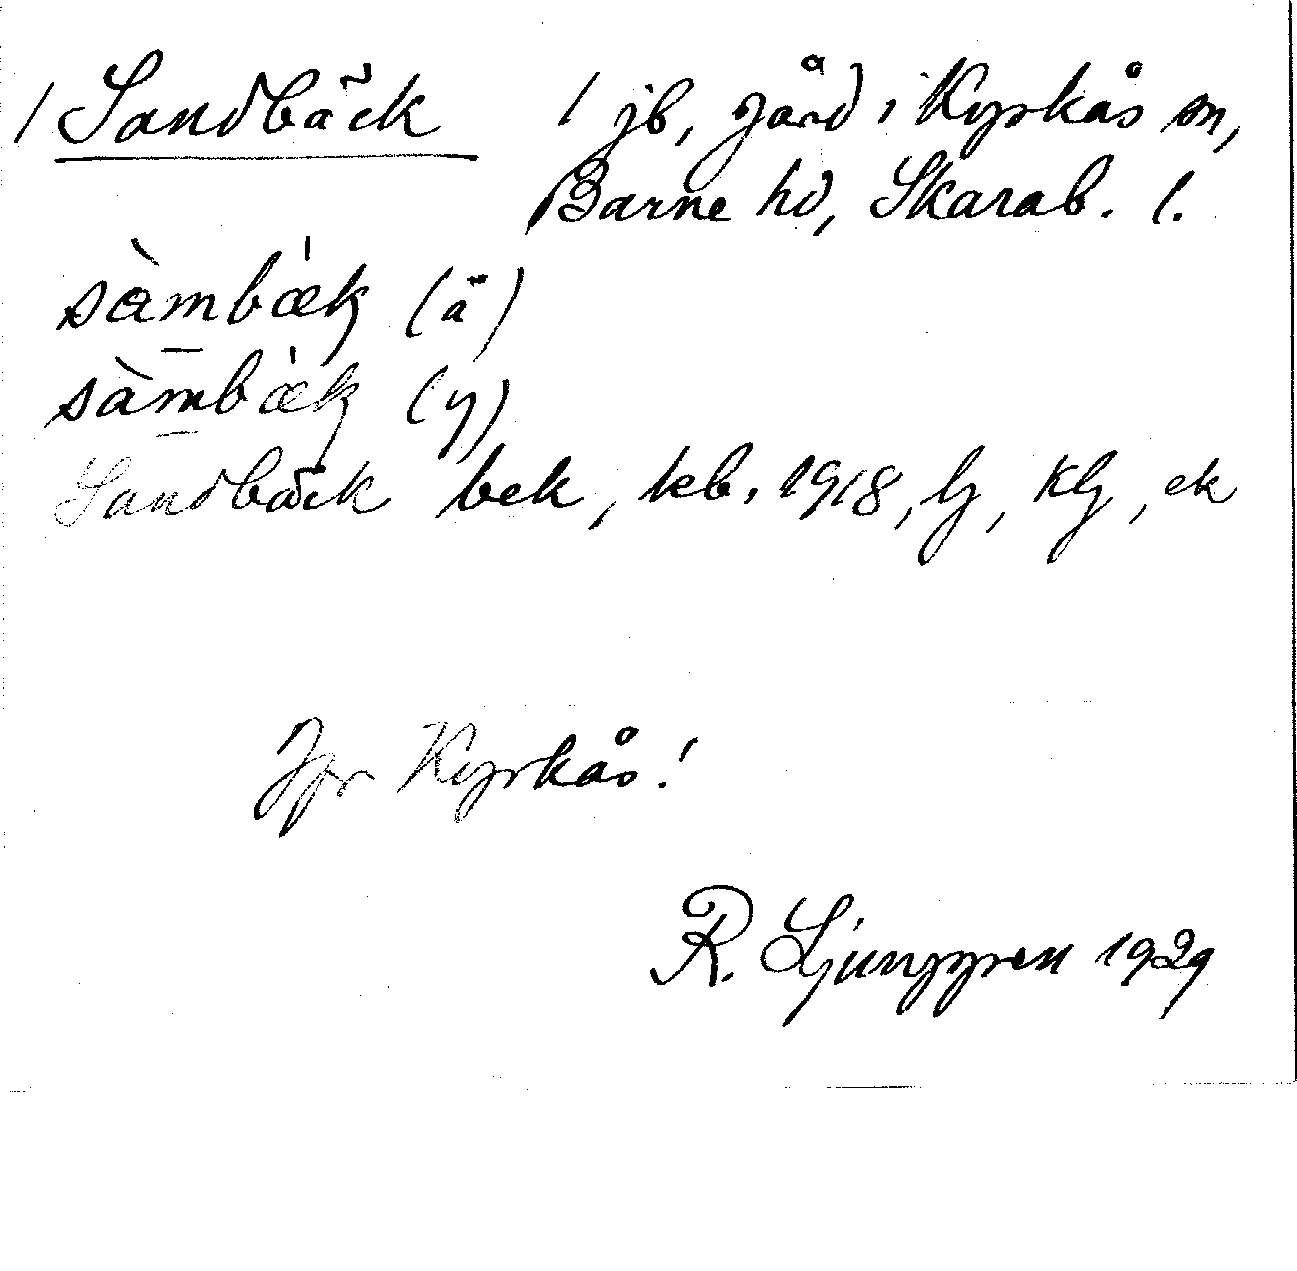 / Sandbäck / jb, gård i Kyrkås sn,
Barne hd, Skarab. l.
sàmbæ̀k (ä)
sàmbæ̀k (y)
Sandbäck bek, kb. 1918, lj, klj, ek
Jfr Kyrkås!
R. Ljunggren 1929